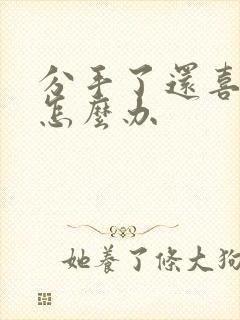 分手了還喜
怎麼办
她養了條大狗